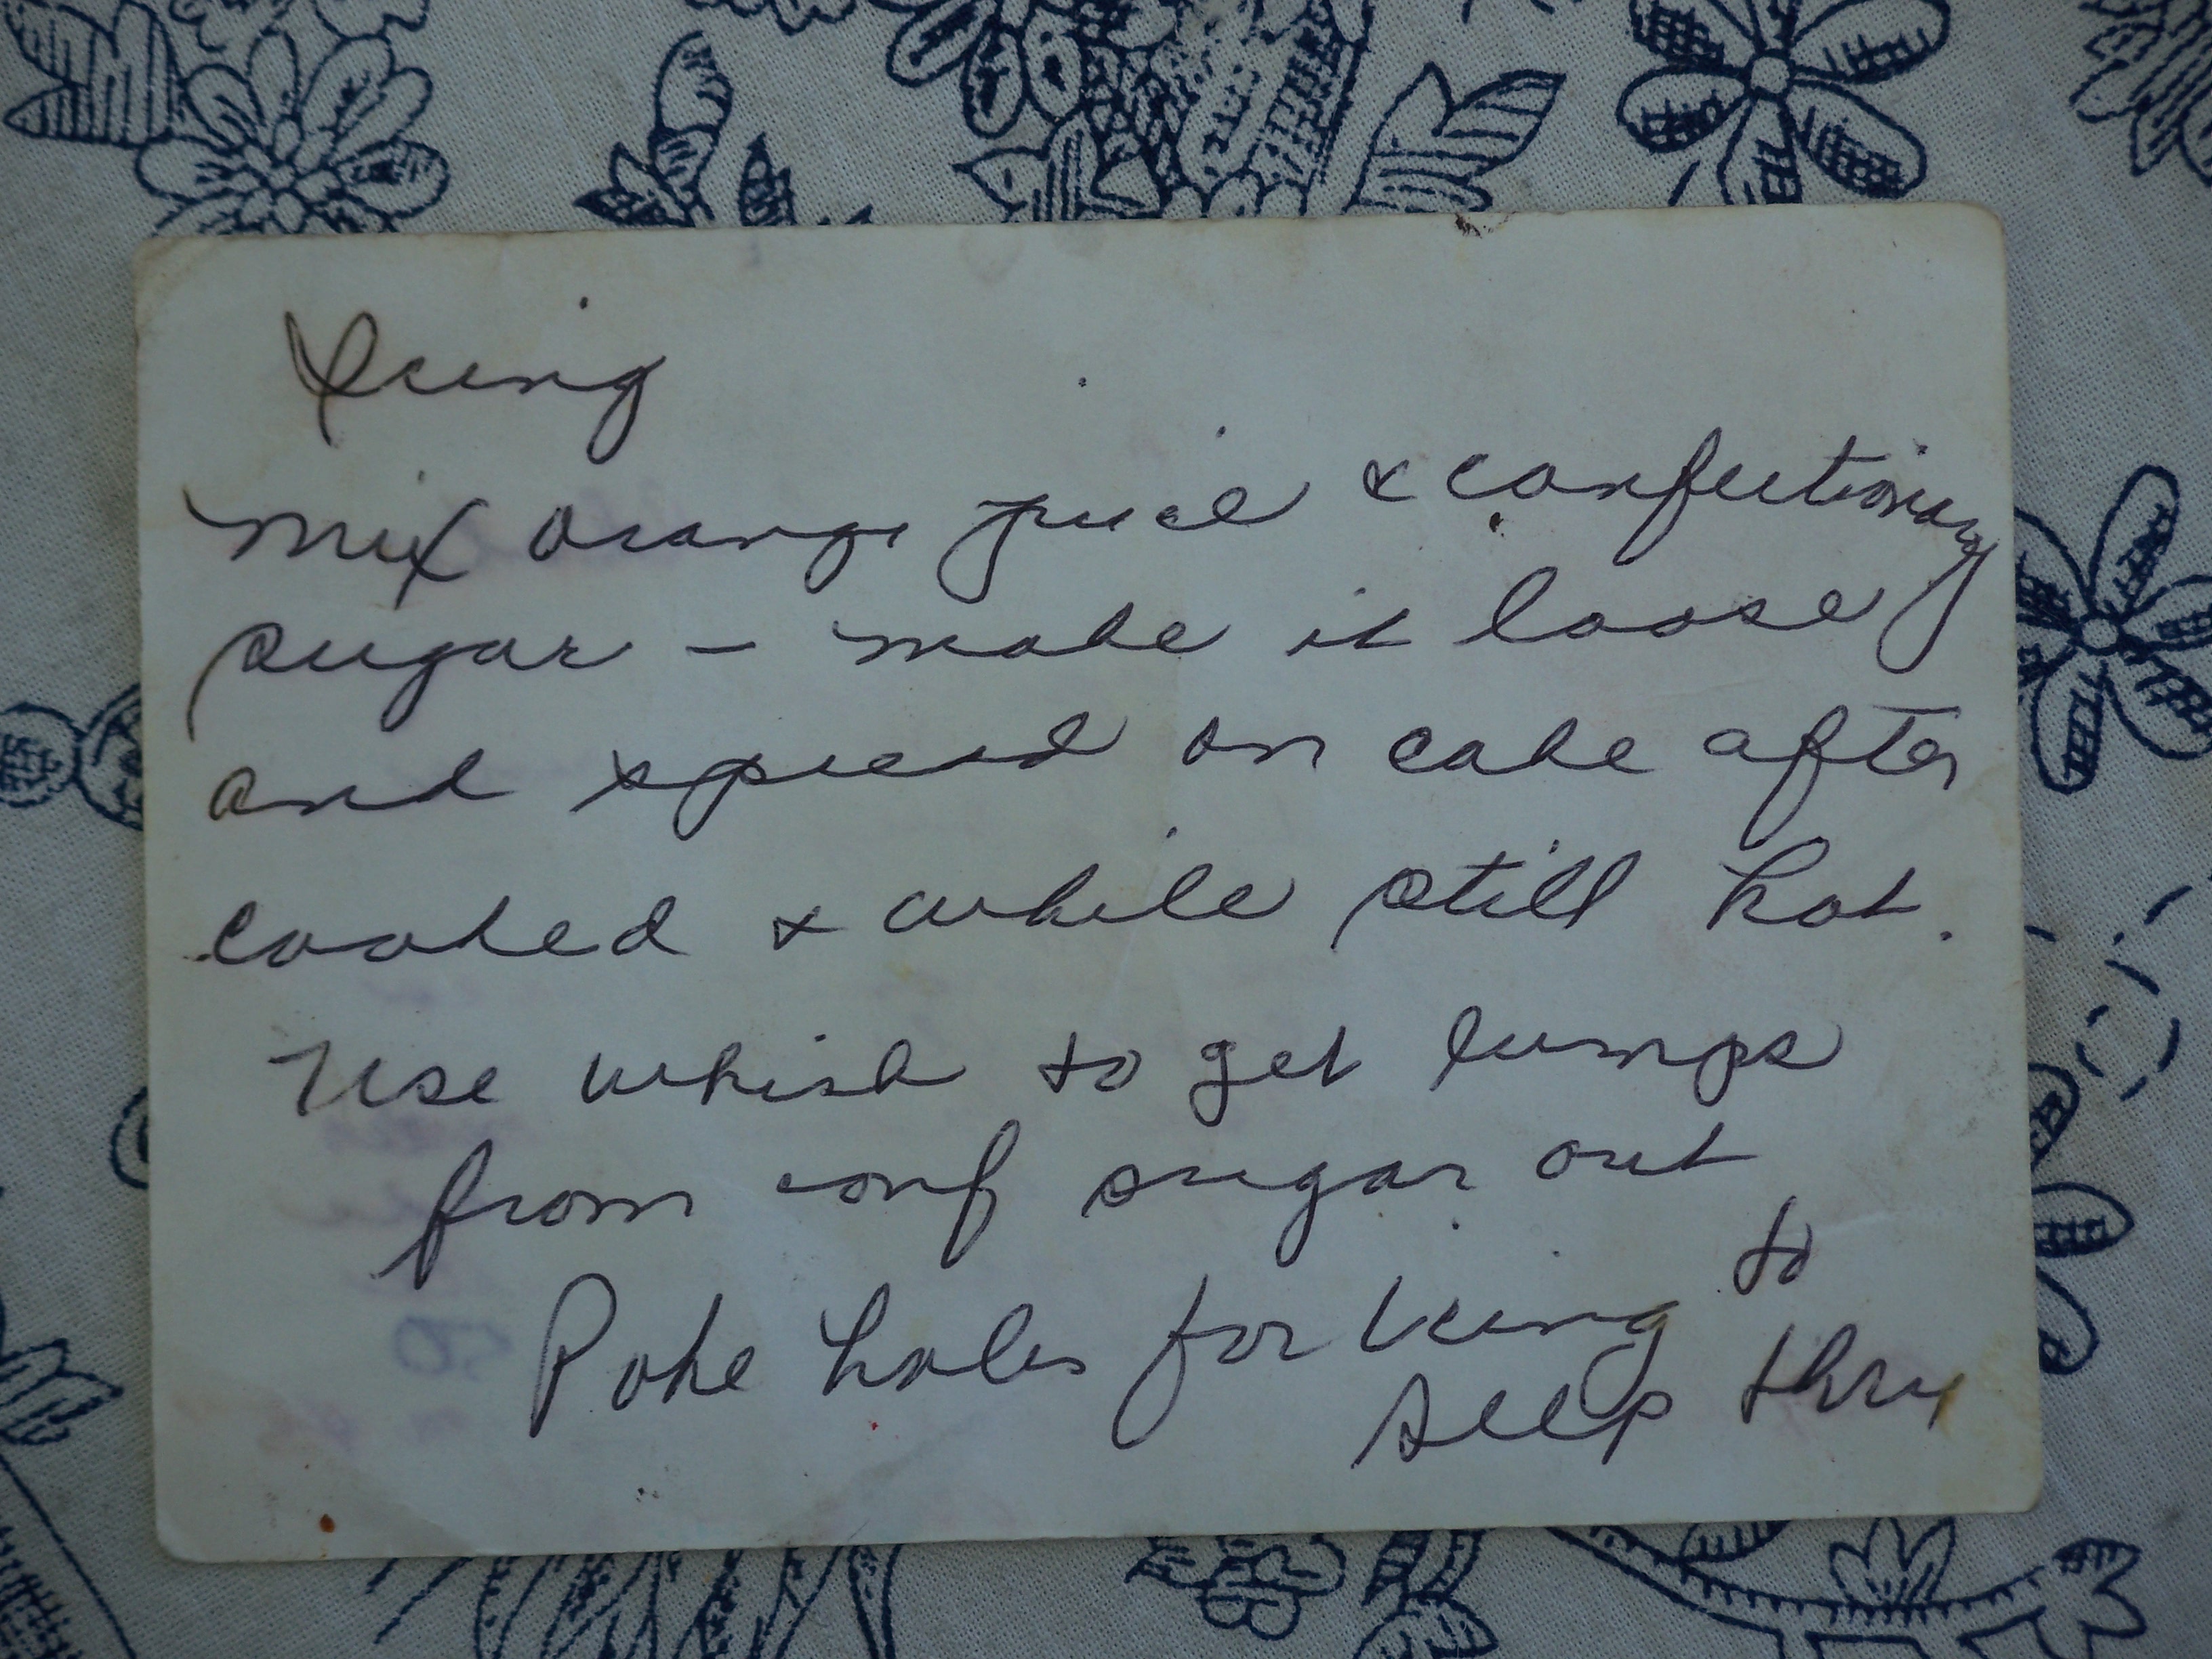 Icing
Mix orange juice & confectionary
sugar - make it loose
and spread on cake after
cooked & while still hot.
Use whisk to get lumps
from conf sugar out
Poke holes for icing to
seep thru